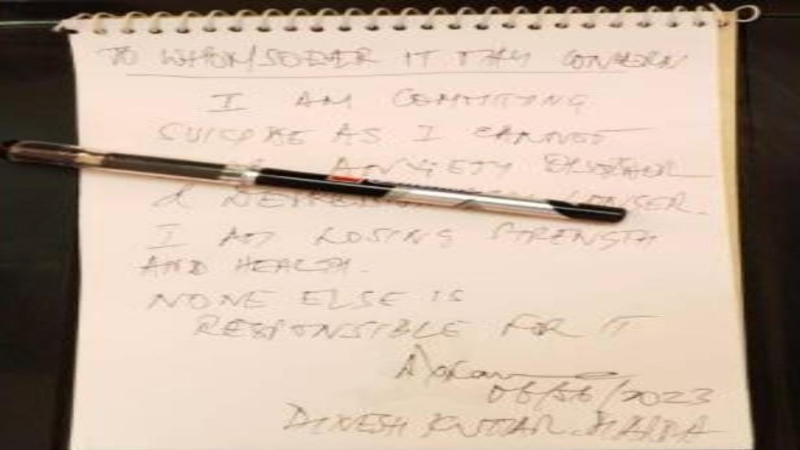 TO WHOMSOEVER IT MAY CONCERN
I AM COMMITTING
SUICIDE AS I CANNOT
ANXIETY
& LONGER.
I AM LOSING STRENGTH
AND HEALTH.
NONE ELSE IS
RESPONSIBLE FOR IT
/2023
DINESH KUMAR